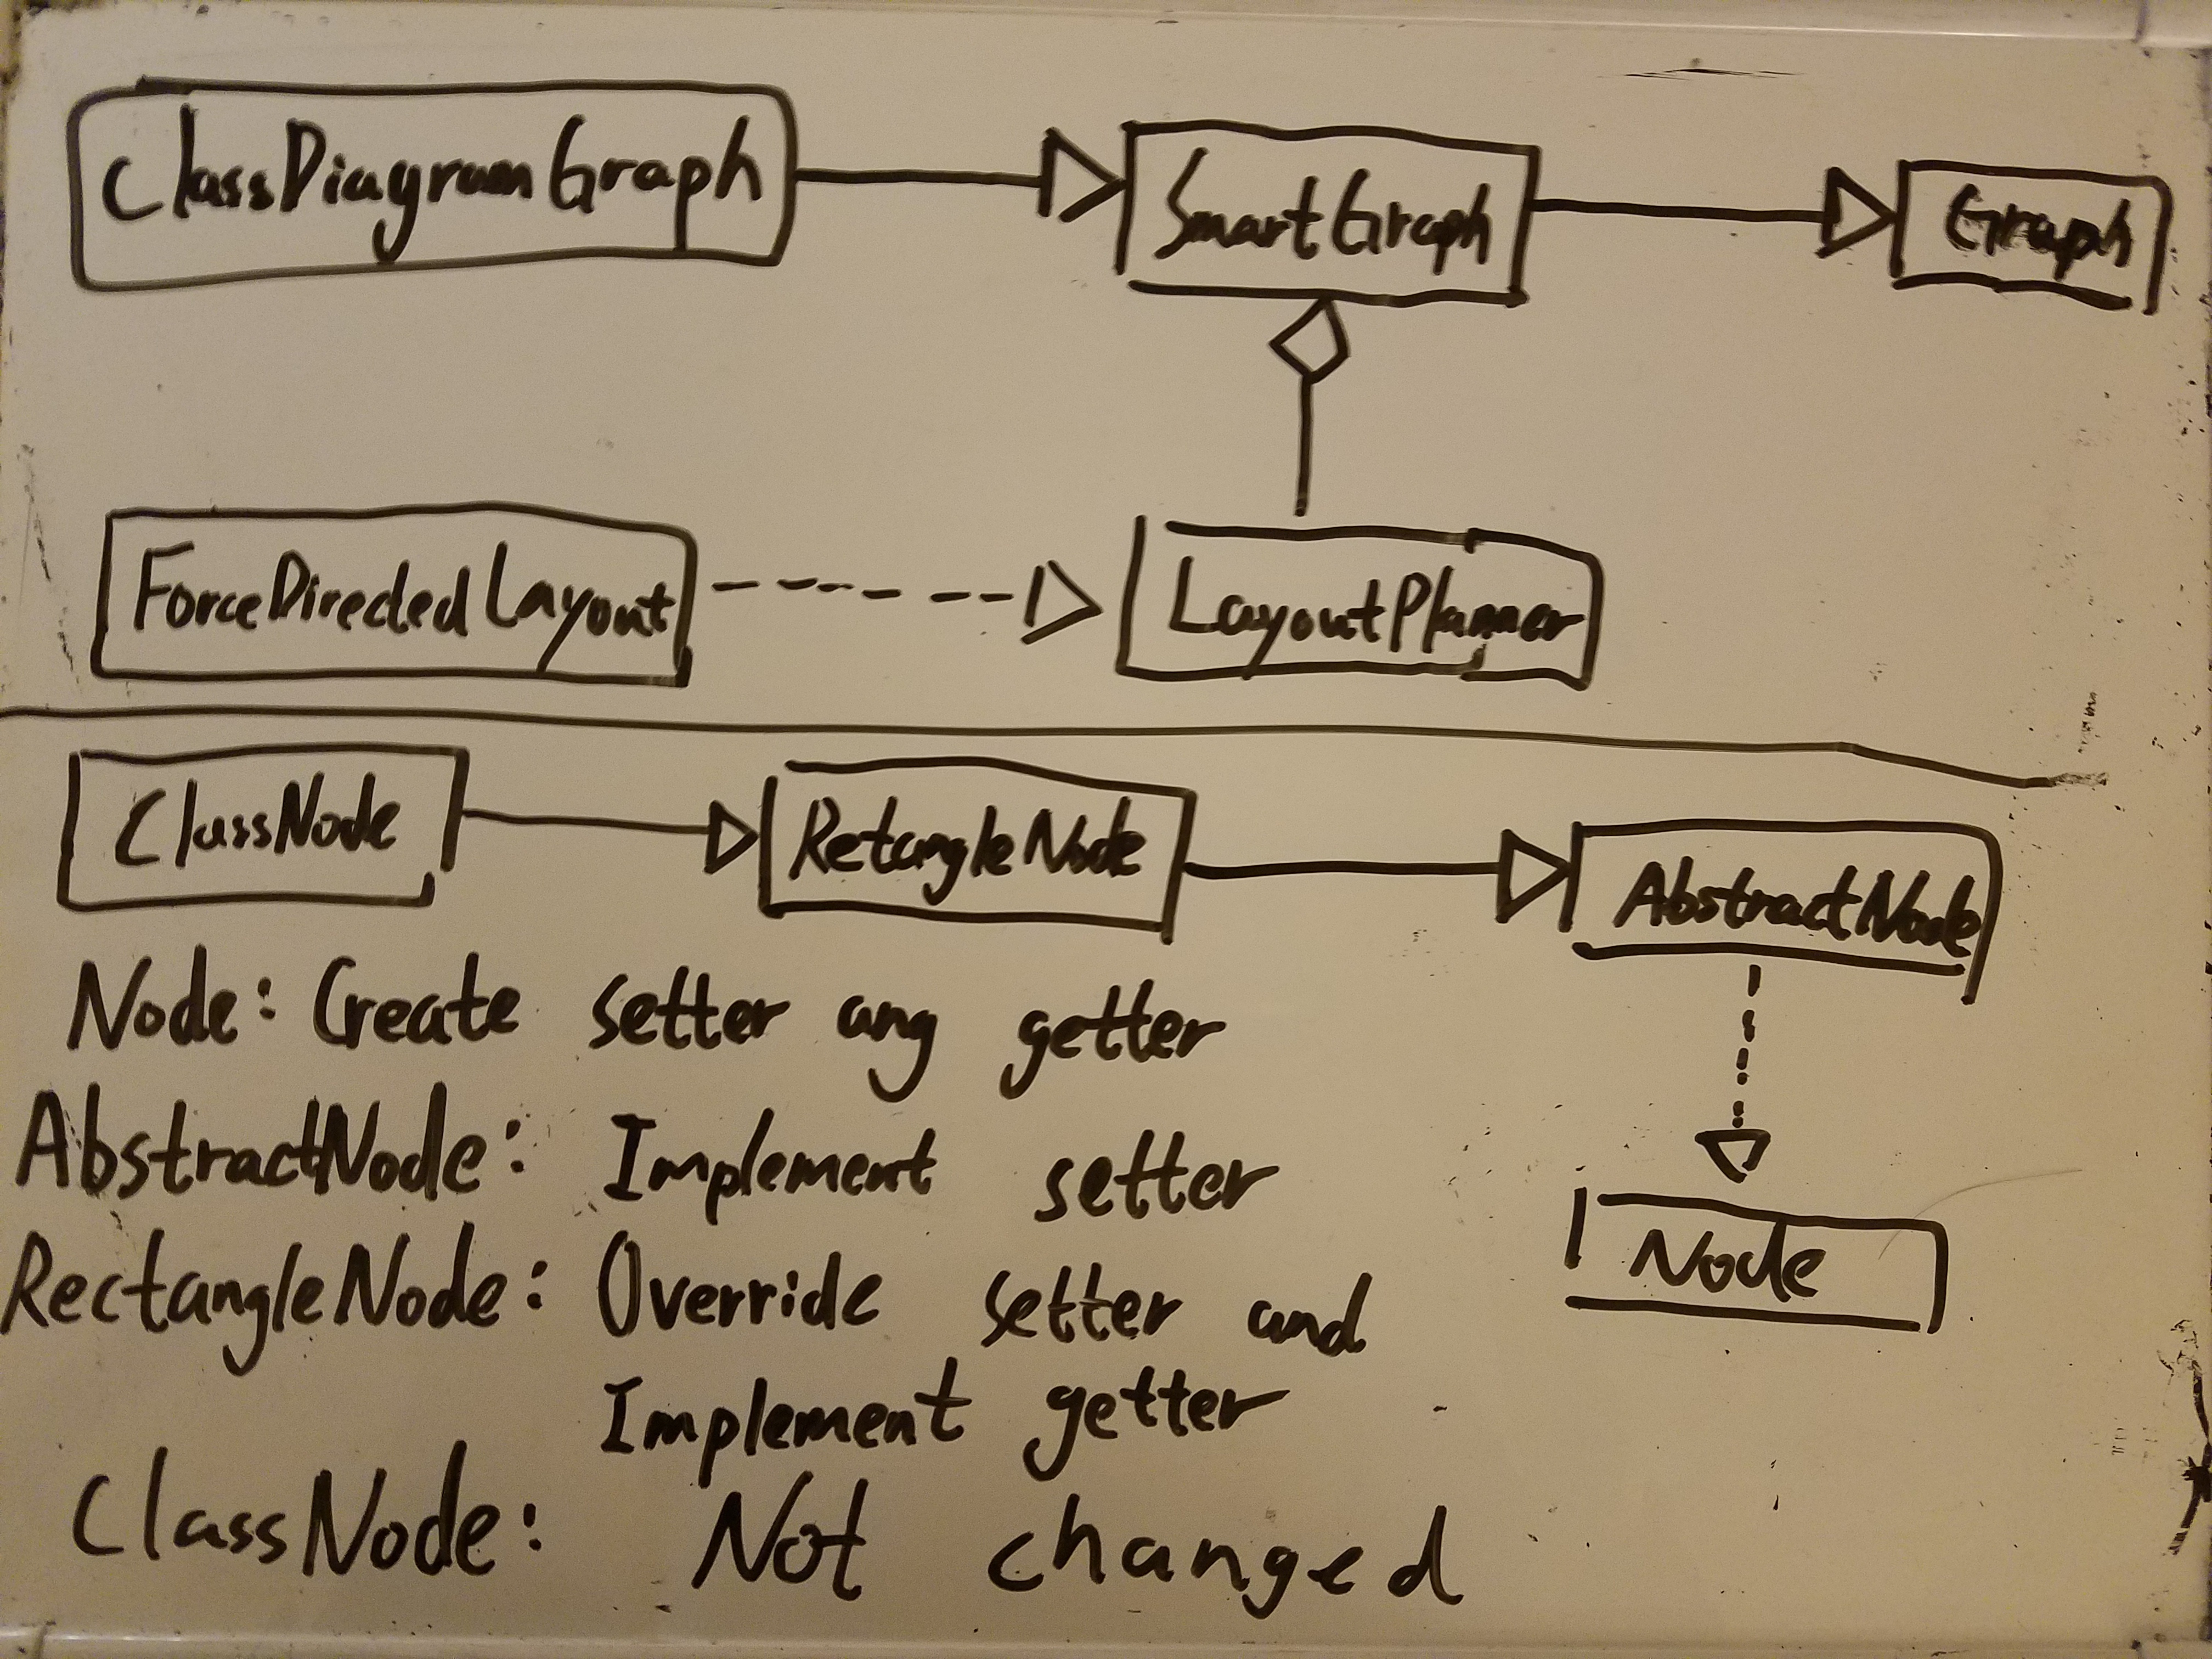 ClassDiagramGraph
SmartGraph
Graph
ForceDirectedLayout
LayoutPlanner
ClassNode
RetangleNode
AbstractNode
Node: Create setter ang getter
AbstractNode: Implement setter
Node
RectangleNode: Override setter and
Implement getter
ClassNode: Not changed